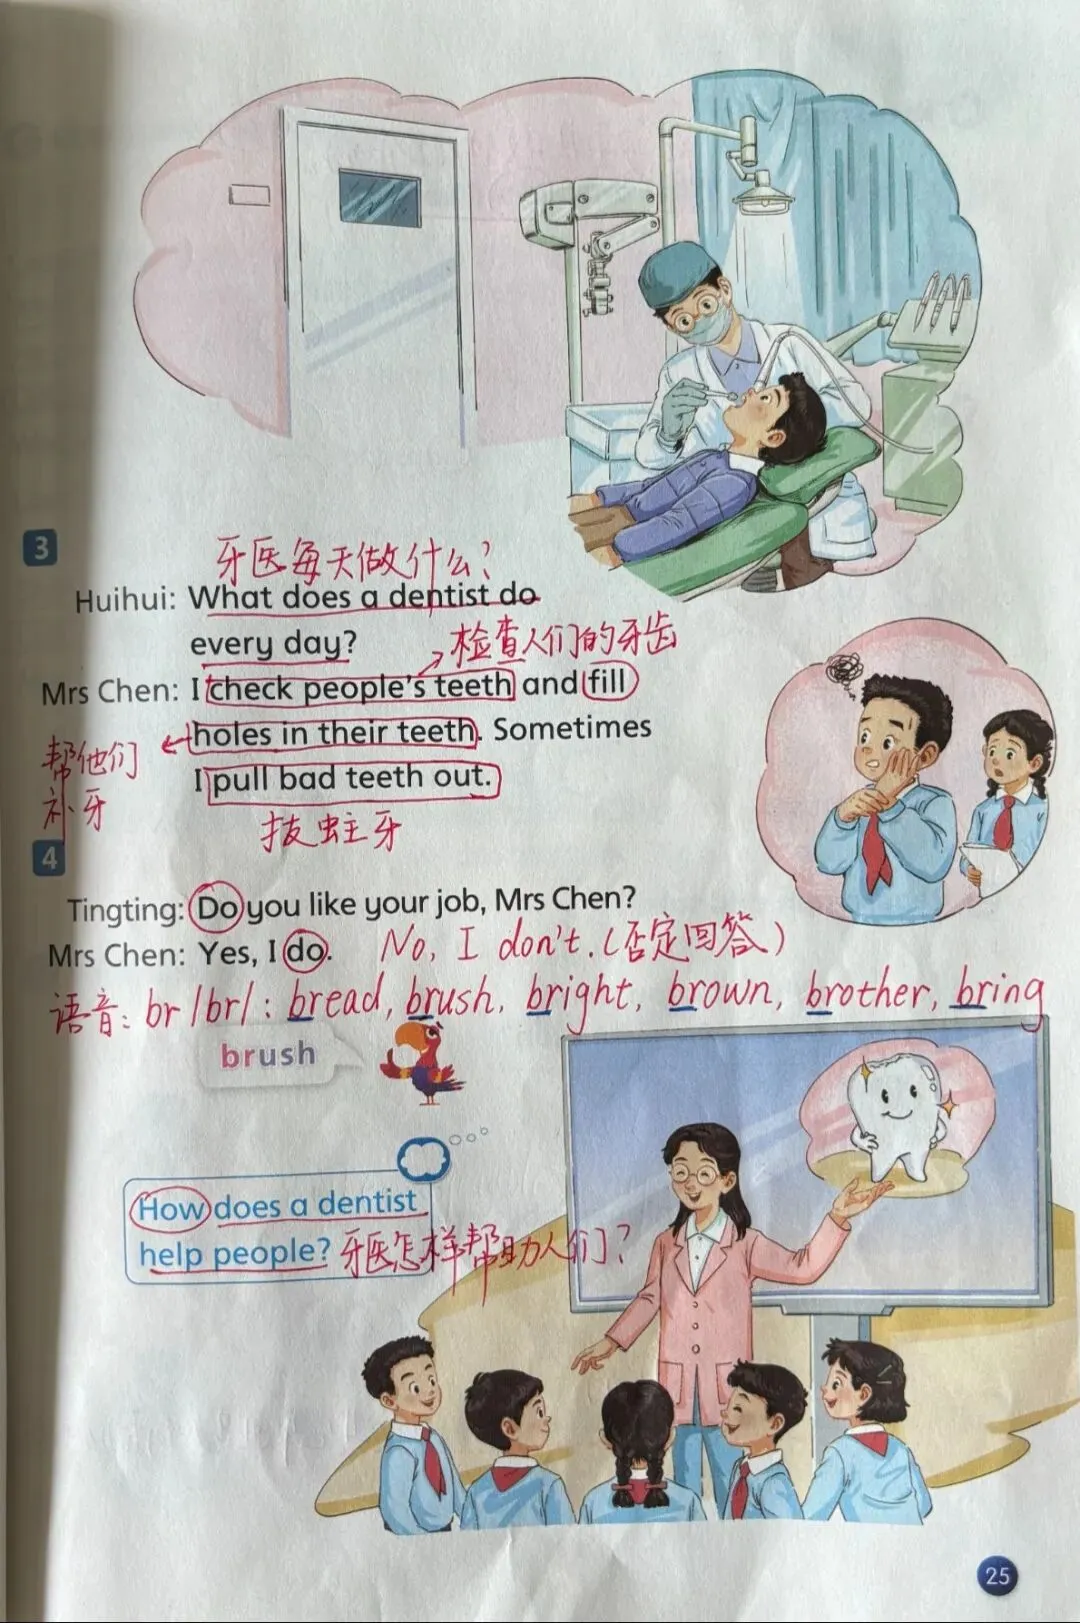 3
牙医每天做什么?
Huihui: What does a dentist do
every day?
检查人们的牙齿
Mrs Chen: I check people's teeth and fill
holes in their teeth. Sometimes
帮他们
补牙
I pull bad teeth out.
拔蛀牙
4
Tingting: Do you like your job, Mrs Chen?
Mrs Chen: Yes, I do. No, I don't. (否定回答)
语音: br /br/: bread, brush, bright, brown, brother, bring
brush
How does a dentist
help people? 牙医怎样帮助人们?
25